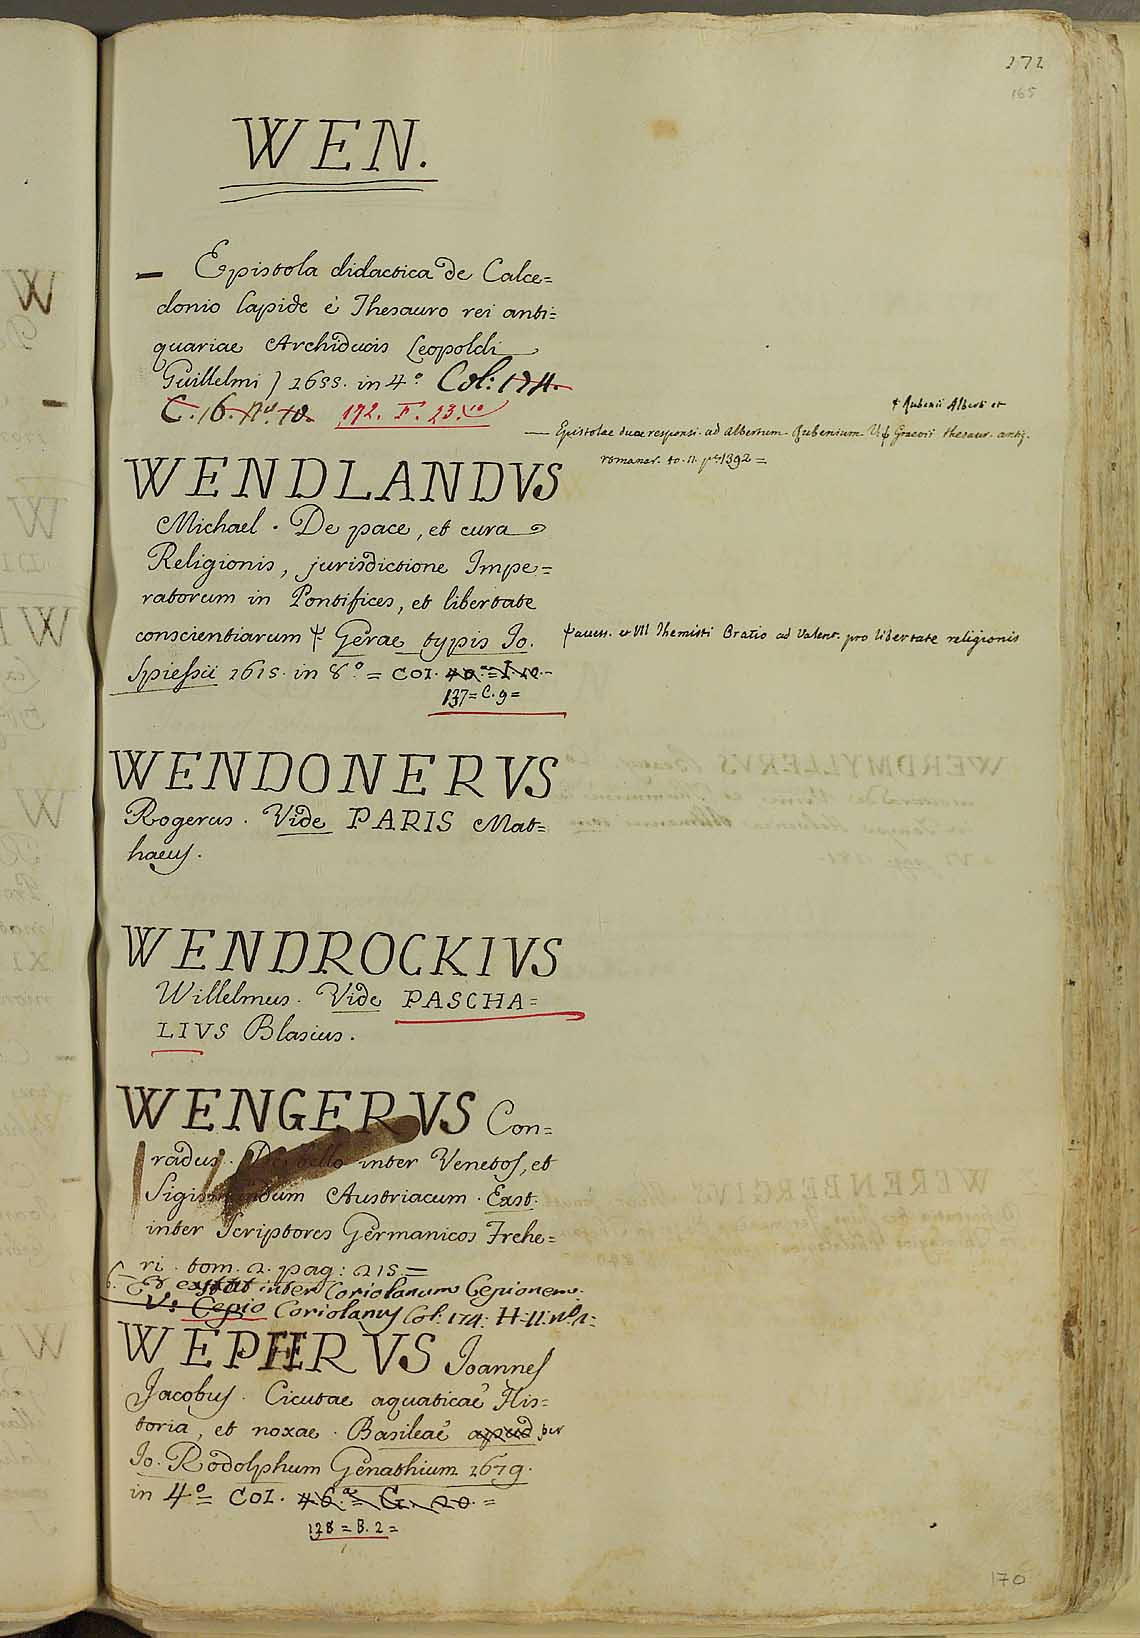 171
165
WEN.
— Epistola didactica de Calce=
donio lapide è Thesauro rei anti=
quariae Archiducis Leopoldi
Guillelmi) 1655. in 4.° Col: 174.
C. 16. n.° 10. 172. F. 23.
+ Rubenii Alberti et
— Epistolae duae responsi. ad Albertum Rubenium V. + Graevii thesaur. antiq.
romanar. to. 11. p. 1392 =
WENDLANDVS
Michael. De pace, et cura
Religionis, jurisdictione Impe=
ratorum in Pontifices, et libertate
conscientiarum + Gerae typis Io.
+ access. et VII Themisti Oratio ad Valent. pro libertate religionis
Spiessii 1615. in 8.° = COI. 40. = I. 10.
137 = C. 9 =
WENDONERVS
Rogerus. Vide PARIS Mat=
haeus.
WENDROCKIVS
Willelmus. Vide PASCHA=
LIVS Blasius.
WENGERVS Con=
radus. De bello inter Venetos, et
Sigismundum Austriacum. Exst.
inter Scriptores Germanicos Frehe=
ri. tom. 2. pag: 215. =
6. Et extat inter Coriolanum Cepionem.
V: Cepio Coriolanus Col. 174. H. 11. n.° 1.
WEPFERVS Ioannes
Jacobus. Cicutae aquaticae His=
toria, et noxae. Basileae apud per
Io. Rodolphum Genathium 1679.
in 4.° = COI. 46. = G. 20. =
138 = B. 2 =
170